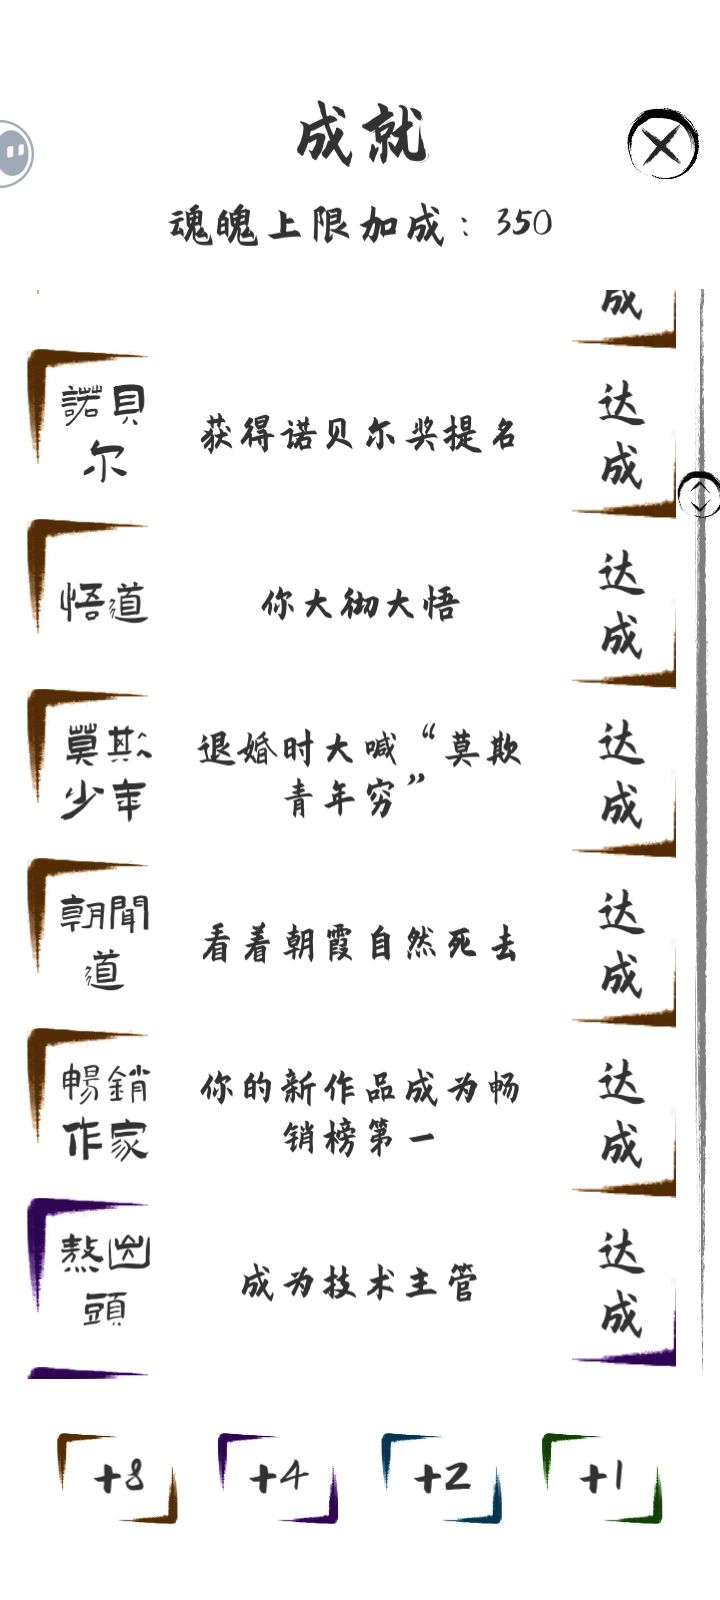 成就
魂魄上限加成：350
成
諾貝
尔
获得诺贝尔奖提名
达
成
悟道
你大彻大悟
达
成
莫欺
少年
退婚时大喊“莫欺
青年穷”
达
成
朝聞
道
看着朝霞自然死去
达
成
暢銷
作家
你的新作品成为畅
销榜第一
达
成
熬出
頭
成为技术主管
达
成
+8
+4
+2
+1